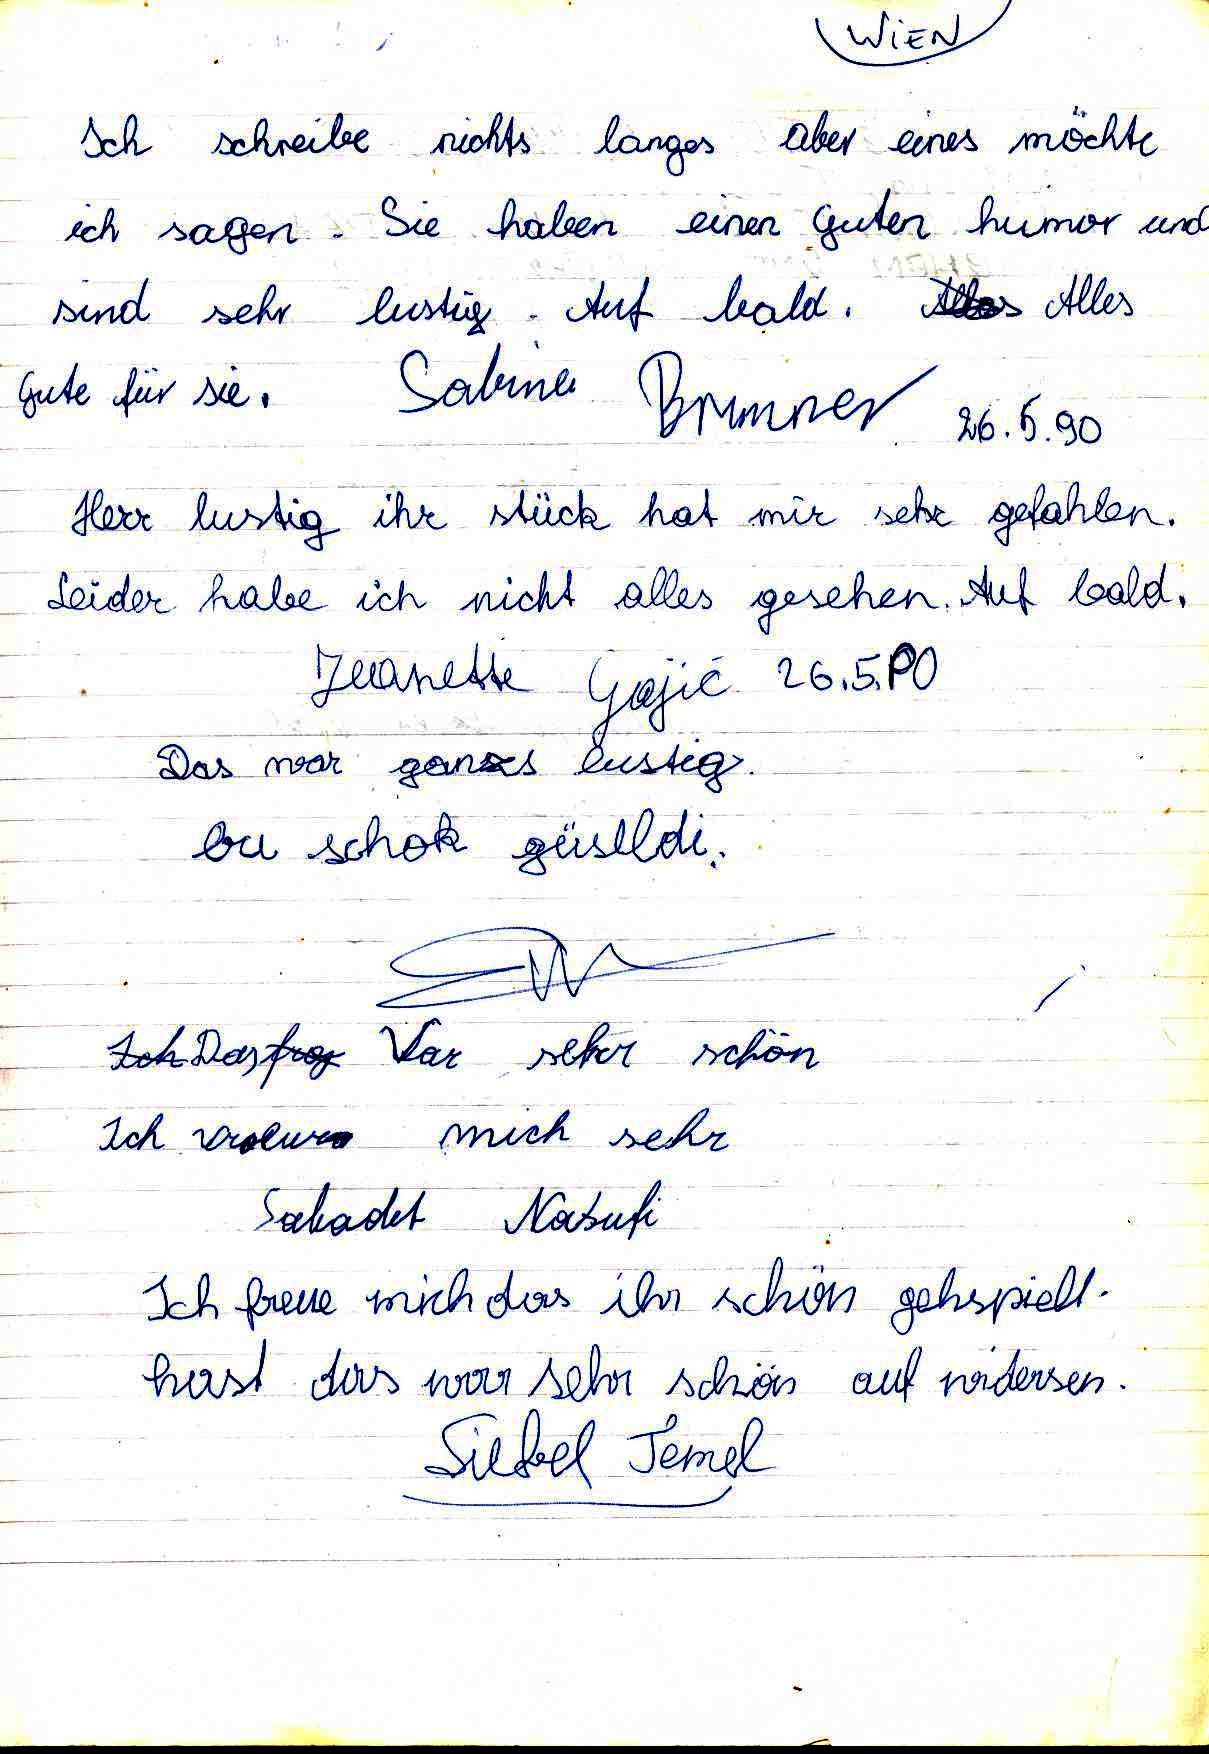 WIEN
Ich schreibe nichts langes aber eines möchte
ich sagen. Sie haben einen guten humor und
sind sehr lustig. Auf bald. Alles
Gute für sie. Sabine Brunner 26.5.90
Herr lustig ihr stück hat mir sehr gefahlen.
Leider habe ich nicht alles gesehen. Auf bald.
Jeanette Gajić 26.5.90
Das war ganzs lustig.
bu schok güselldi.
Var sehr schön
Ich mich sehr
Ich freue mich das ihr schön gehspielt.
hast das war sehr schön auf widersen.
Siebel Temel